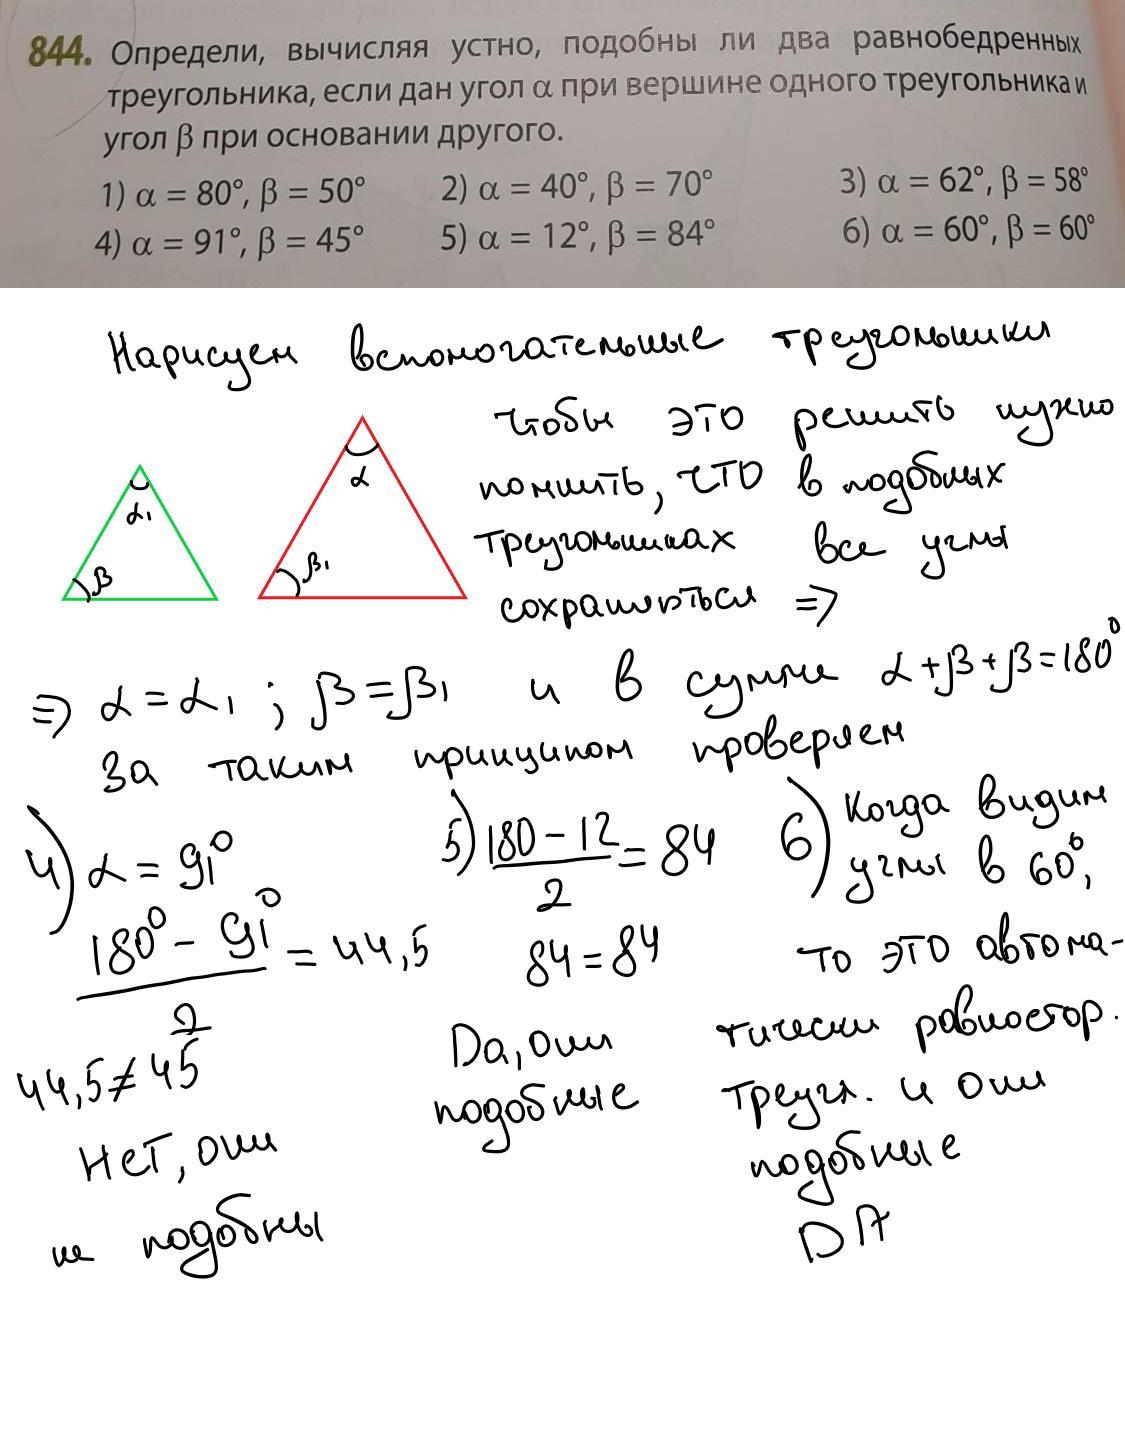 844. Определи, вычисляя устно, подобны ли два равнобедренных
треугольника, если дан угол α при вершине одного треугольника и
угол β при основании другого.
1) α = 80°, β = 50° 2) α = 40°, β = 70° 3) α = 62°, β = 58°
4) α = 91°, β = 45° 5) α = 12°, β = 84° 6) α = 60°, β = 60°
Нарисуем вспомогательные треугольники
α₁
β
α
β₁
Чтобы это решить нужно
помнить, что в подобных
треугольниках все углы
сохраняються =>
=> α = α₁ ; β = β₁ и в сумме α+β+β=180°
За таким принципом проверяем
4) α = 91°
(180° - 91°)/2 = 44,5
44,5 ≠ 45
Нет, они
не подобны
5) (180 - 12)/2 = 84
84 = 84
Да, они
подобные
6) Когда видим
углы в 60°,
то это автома-
тически равностор.
треугл. и они
подобные
DA